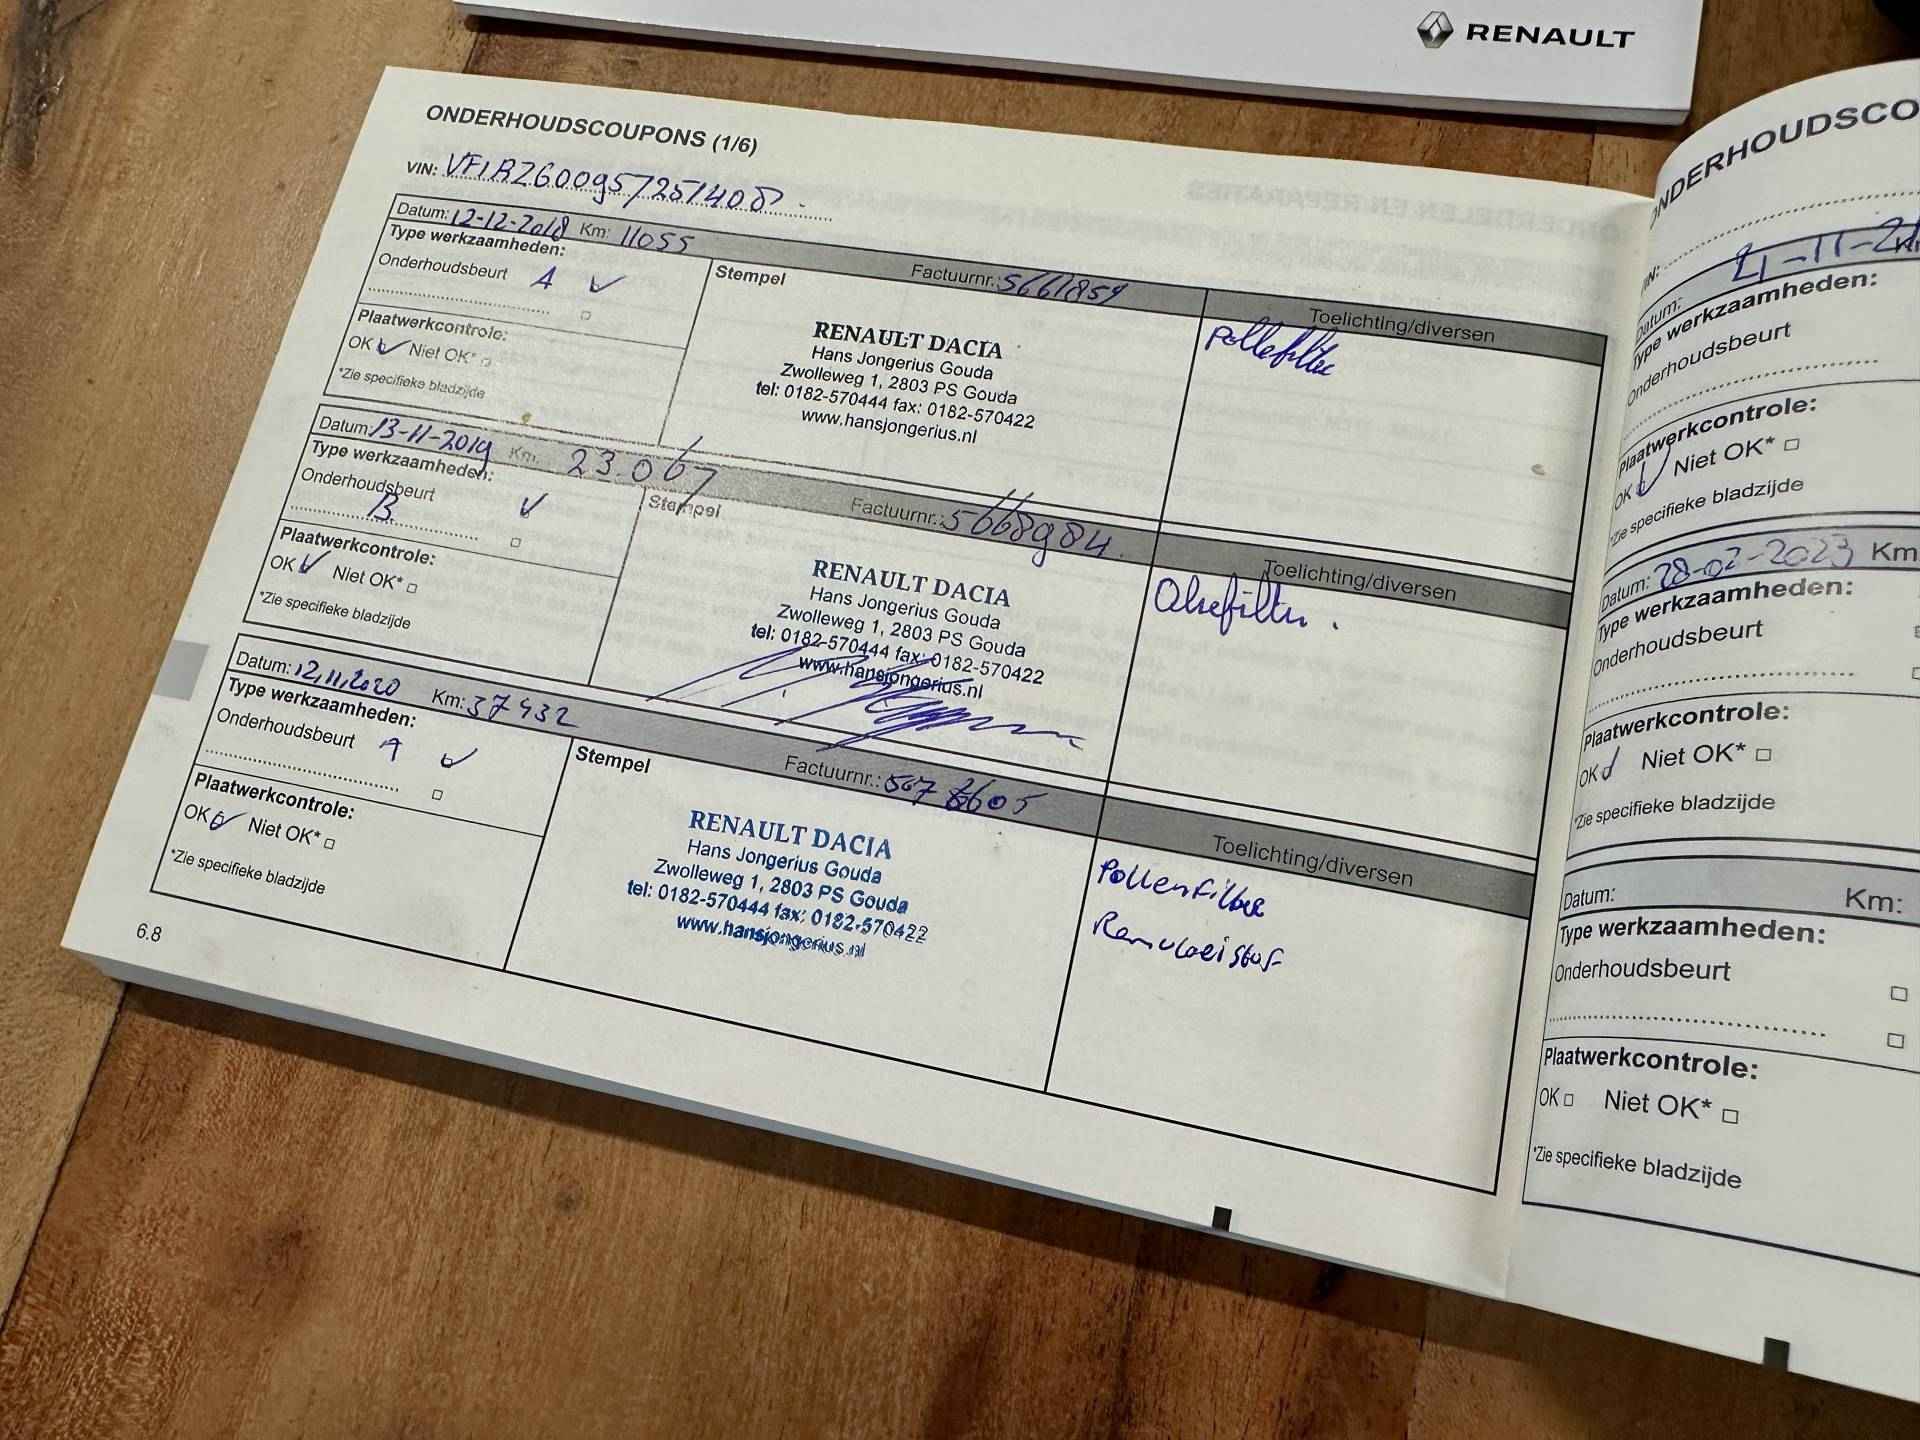 RENAULT
ONDERHOUDSCOUPONS (1/6)
VIN: VF1RZ600957251408
Datum: 12-12-2018 Km: 11055
Type werkzaamheden:
Onderhoudsbeurt A
Plaatwerkcontrole:
OK Niet OK*
*Zie specifieke bladzijde
Stempel
Factuurnr.: 5661859
RENAULT DACIA
Hans Jongerius Gouda
Zwolleweg 1, 2803 PS Gouda
tel: 0182-570444 fax: 0182-570422
www.hansjongerius.nl
Toelichting/diversen
Datum: 13-11-2019 Km: 23.067
Type werkzaamheden:
Onderhoudsbeurt
B
Plaatwerkcontrole:
OK Niet OK*
*Zie specifieke bladzijde
Stempel
Factuurnr.: 5668984
RENAULT DACIA
Hans Jongerius Gouda
Zwolleweg 1, 2803 PS Gouda
tel: 0182-570444 fax: 0182-570422
www.hansjongerius.nl
Toelichting/diversen
Datum: 12.11.2020 Km: 37432
Type werkzaamheden:
Onderhoudsbeurt A
Plaatwerkcontrole:
OK Niet OK*
*Zie specifieke bladzijde
Stempel
Factuurnr.:
RENAULT DACIA
Hans Jongerius Gouda
Zwolleweg 1, 2803 PS Gouda
tel: 0182-570444 fax: 0182-570422
www.hansjongerius.nl
Toelichting/diversen
Pollenfilter
Remvloeistof
6.8
Datum:
Type werkzaamheden:
Onderhoudsbeurt
Plaatwerkcontrole:
OK Niet OK*
*Zie specifieke bladzijde
Datum: 28-02-2023 Km
Type werkzaamheden:
Onderhoudsbeurt
Plaatwerkcontrole:
OK Niet OK*
*Zie specifieke bladzijde
Datum: Km:
Type werkzaamheden:
Onderhoudsbeurt
Plaatwerkcontrole:
OK Niet OK*
*Zie specifieke bladzijde